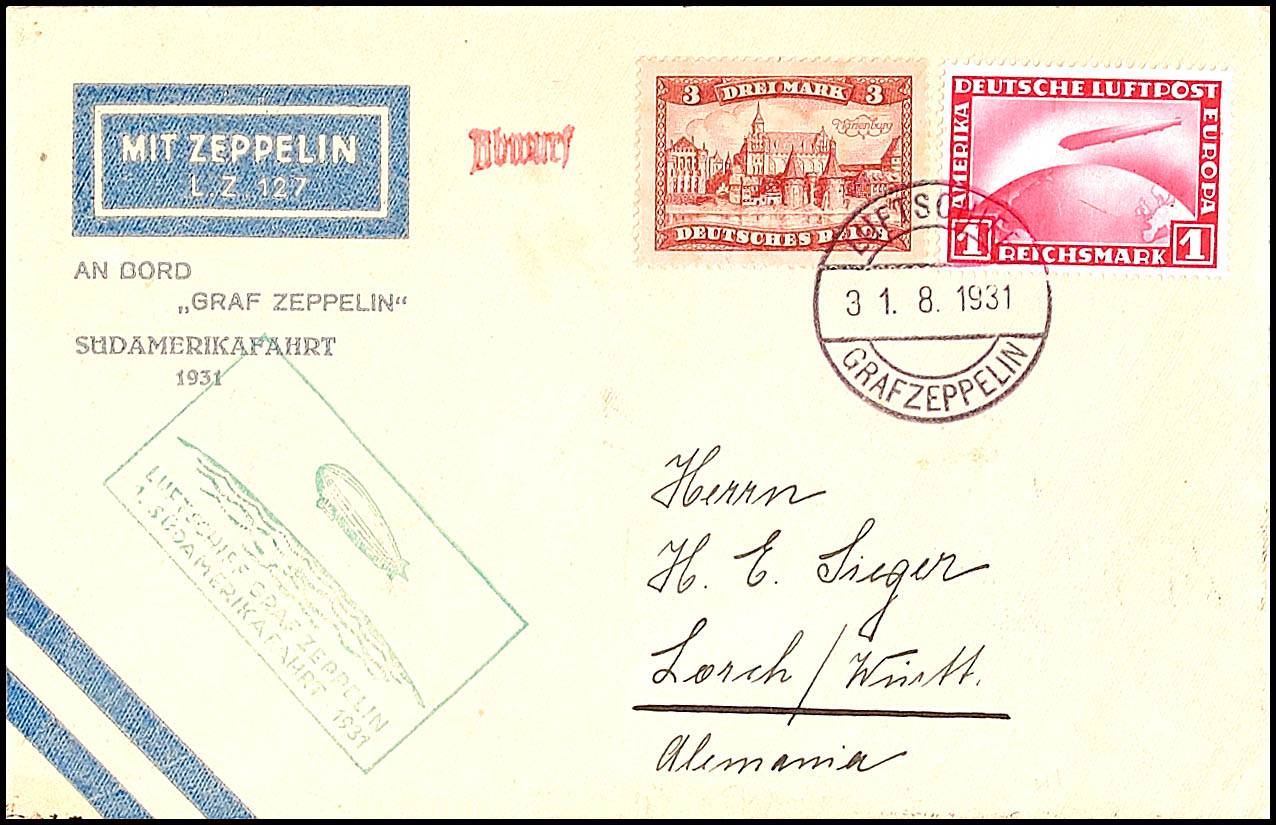 MIT ZEPPELIN
L. Z. 127
AN BORD
„GRAF ZEPPELIN“
SÜDAMERIKAFAHRT
1931
Abwurf
3 DREI MARK 3
Marienburg
DEUTSCHES REICH
DEUTSCHE LUFTPOST
AMERIKA
EUROPA
1 REICHSMARK 1
LUFTSC
31. 8. 1931
GRAF ZEPPELIN
LUFTSCHIFF GRAF ZEPPELIN
1. SÜDAMERIKAFAHRT 1931
Herrn
H. E. Sieger
Lorch / Württ.
Alemania